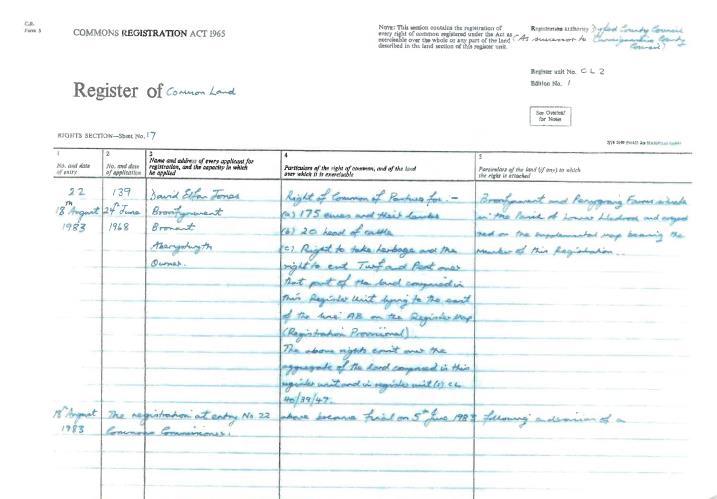 C.R.
Form 5
COMMONS REGISTRATION ACT 1965
Note: This section contains the registration of
every right of common registered under the Act as
exercisable over the whole or any part of the land
described in the land section of this register unit.
Registration authority Dyfed County Council
(As successor to Cardiganshire County
Council)
Register unit No. CL2
Edition No. 1
See Overleaf
for Notes
Register of Common Land
RIGHTS SECTION—Sheet No. 17
1
No. and date
of entry
2
No. and date
of application
3
Name and address of every applicant for
registration, and the capacity in which
he applied
4
Particulars of the right of common, and of the land
over which it is exercisable
5
Particulars of the land (if any) to which
the right is attached
22
18th August
1983
139
24th June
1968
David Jones
Bronant
Aberystwyth
Owner.
Right of Common of Pasture for :-
(a) 175 ewes and their lambs
(b) 20 head of cattle
(c) Right to take herbage and the
right to cut Turf and Peat over
that part of the land comprised in
this Register Unit lying to the east
of the line AB on the Register Map
(Registration Provisional).
The above rights exist over the
aggregate of the land comprised in this
register unit and in register unit(s) CL
40/39/47.
and Farms situate
in the Parish of Lower and edged
red on the supplemental map bearing the
number of this Registration.
18th August
1983
The registration at entry No 22 above became final on 5th June 1983 following a decision of a
Commons Commissioner.